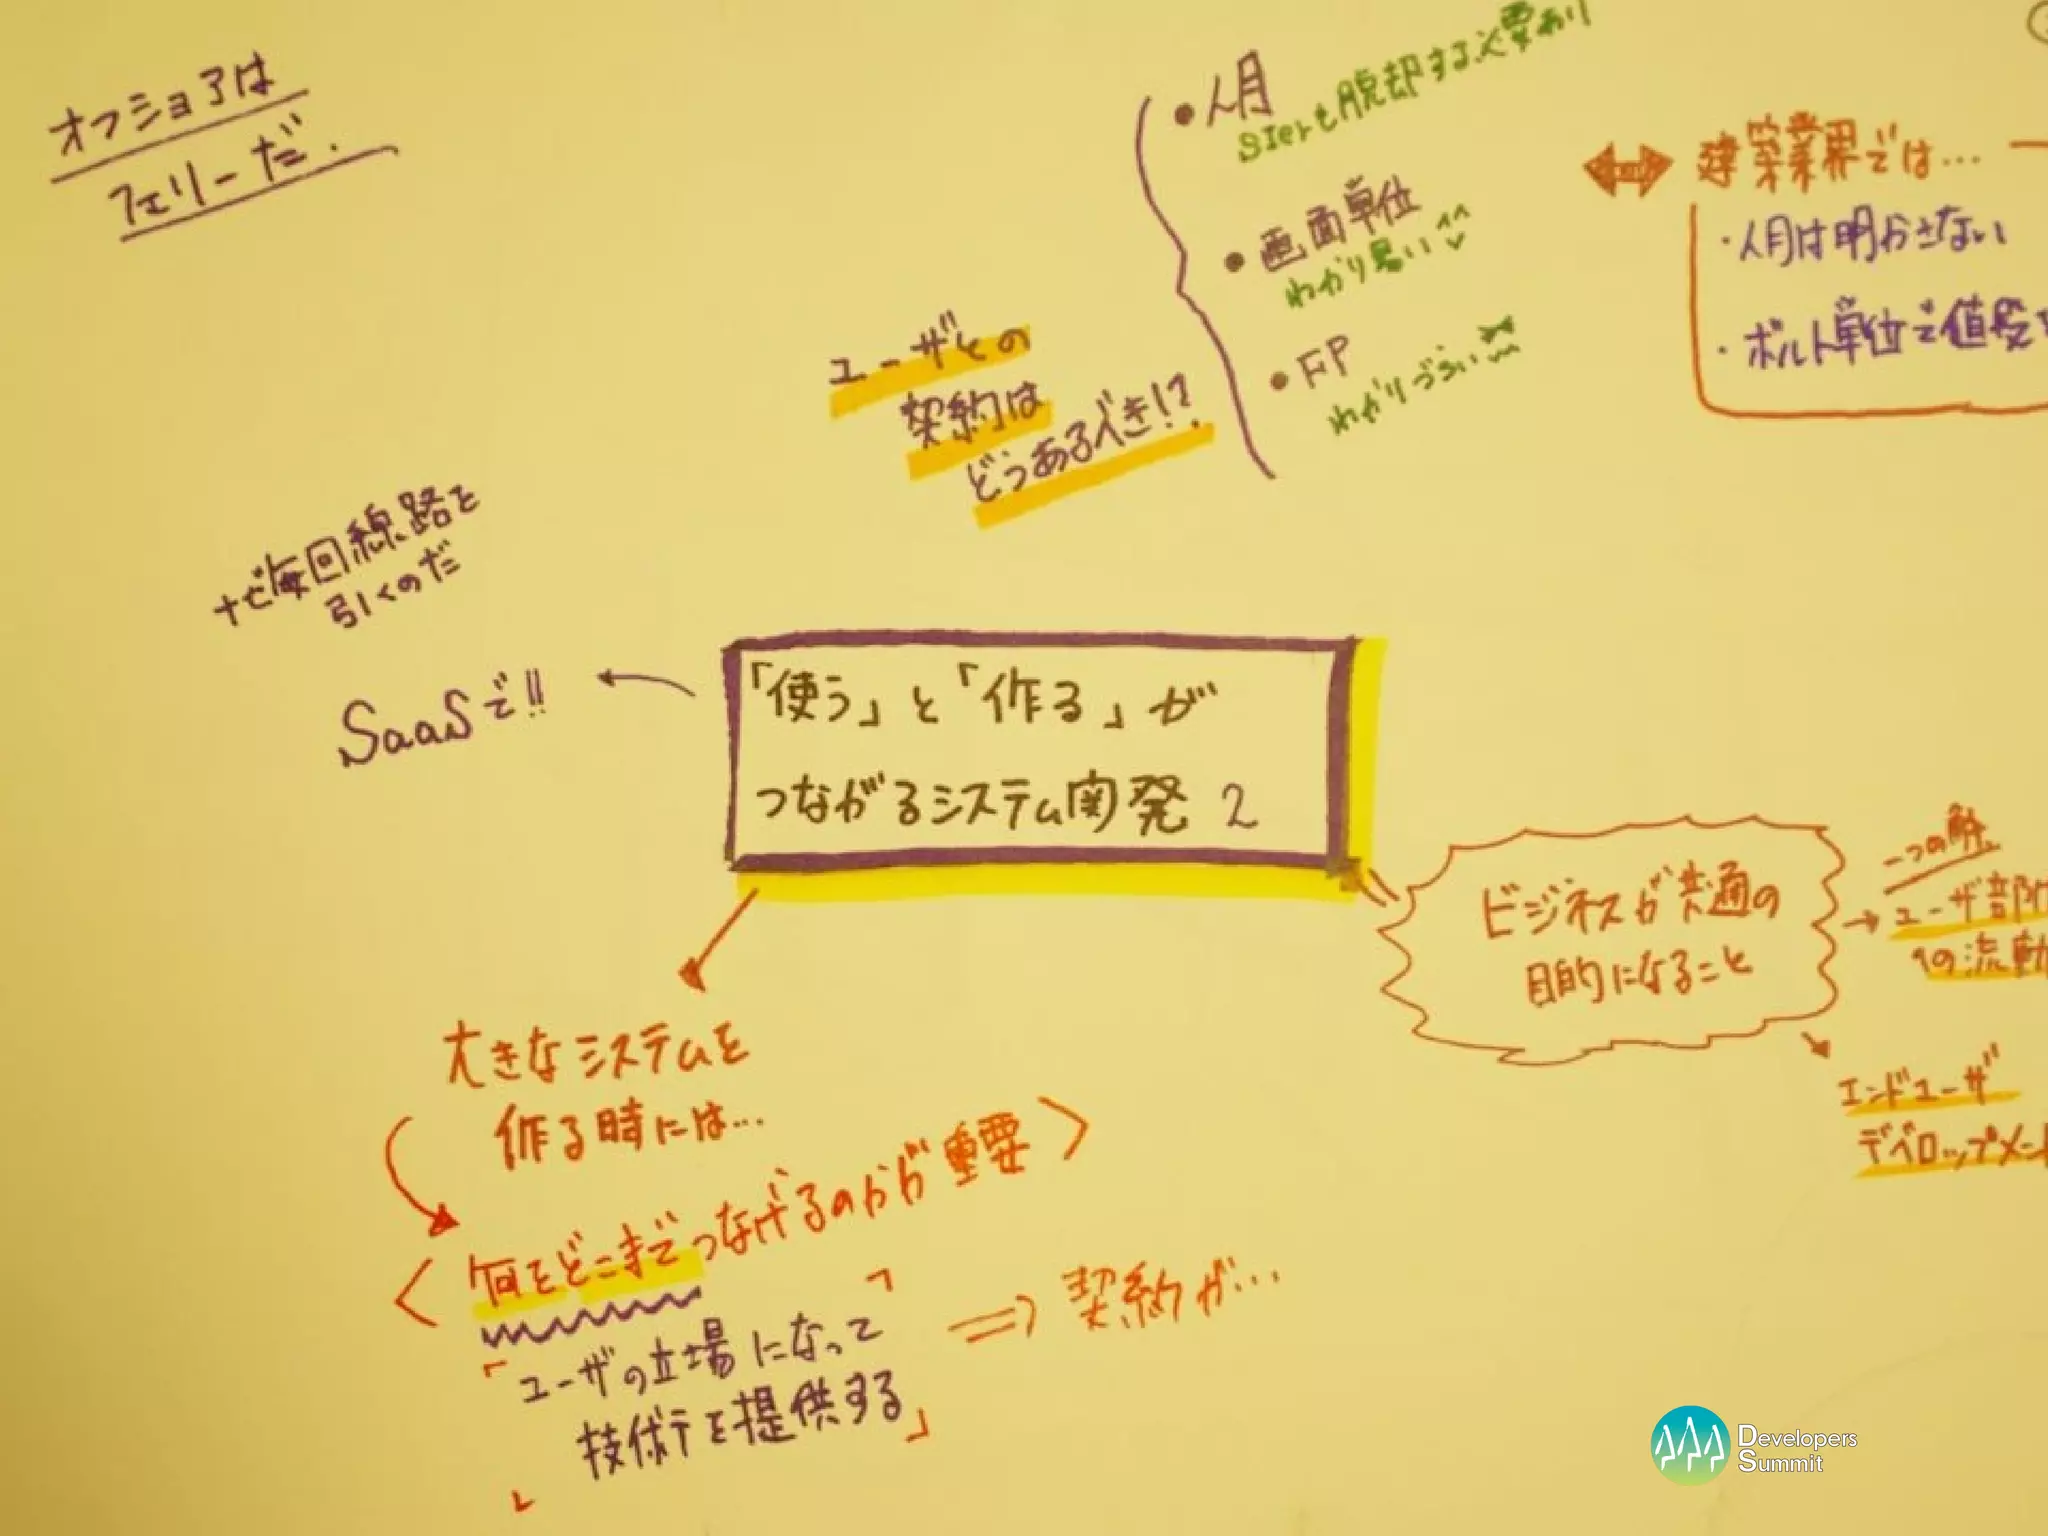 オフショアは
フェリーだ.
ユーザとの
契約は
どうあるべき!?
・人月
SIerも脱却する必要あり
・画面単位
わかり易い
・FP
わかりづらい
建築業界では…
・人月は明かさない
・ボルト単位で値段
ナゼ毎回線路を
引くのだ
SaaSで!!
「使う」と「作る」が
つながるシステム開発 2
ビジネスが共通の
目的になること
一つの解
ユーザ部門
への流動
エンドユーザ
デベロップメント
大きなシステムを
作る時には…
何をどこまでつなげるのかが重要
「ユーザの立場になって
技術を提供する」
⇒ 契約が…
Developers
Summit